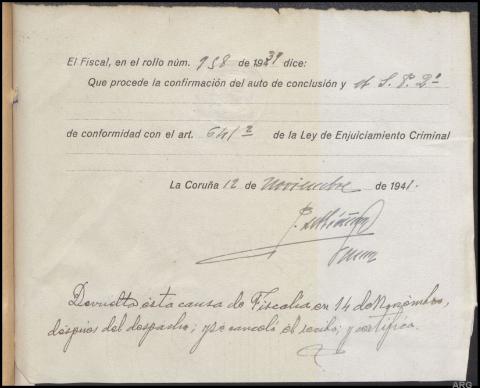 El Fiscal, en el rollo núm. 958 de 1939 dice:
Que procede la confirmación del auto de conclusión y el S. P. 2º
de conformidad con el art. 641/2 de la Ley de Enjuiciamiento Criminal
La Coruña 12 de noviembre de 1941.
Devuelta ésta causa de Fiscalia en 14 de Noviembre,
despues del despacho; y se canceló el recibo; y certifico.
ARG